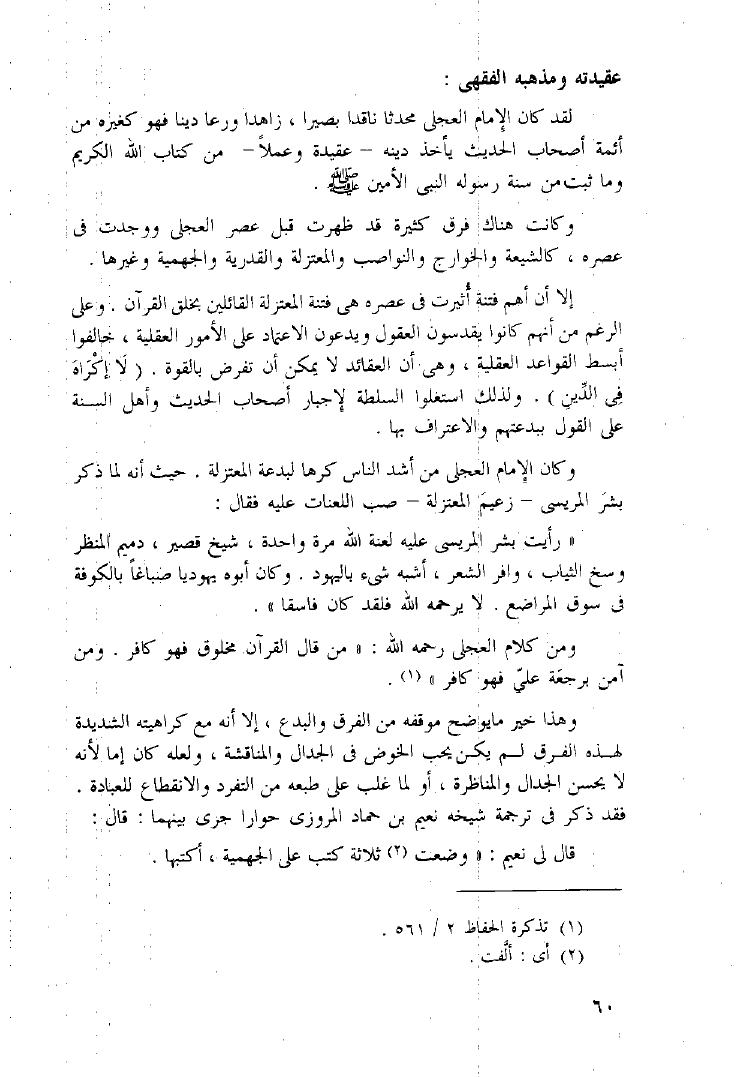 عقيدته ومذهبه الفقهى :
لقد كان الإمام العجلى محدثا ناقدا بصيرا ، زاهدا ورعا دينا فهو كغيره من
أئمة أصحاب الحديث يأخذ دينه – عقيدة وعملاً – من كتاب الله الكريم
وما ثبت من سنة رسوله النبى الأمين ﷺ .
وكانت هناك فرق كثيرة قد ظهرت قبل عصر العجلى ووجدت فى
عصره ، كالشيعة والخوارج والنواصب والمعتزلة والقدرية والجهمية وغيرها .
إلا أن أهم فتنة أُثيرت فى عصره هى فتنة المعتزلة القائلين بخلق القرآن . وعلى
الرغم من أنهم كانوا يقدسون العقول ويدعون الاعتماد على الأمور العقلية ، خالفوا
أبسط القواعد العقلية ، وهى أن العقائد لا يمكن أن تفرض بالقوة . ( لَا إِكْرَاهَ
فِى الدِّينِ ) . ولذلك استغلوا السلطة لإجبار أصحاب الحديث وأهل السنة
على القول ببدعتهم والاعتراف بها .
وكان الإمام العجلى من أشد الناس كرها لبدعة المعتزلة . حيث أنه لما ذكر
بشرَ المريسى – زعيمَ المعتزلة – صب اللعنات عليه فقال :
« رأيت بشر المريسى عليه لعنة الله مرة واحدة ، شيخ قصير ، دميم المنظر
وسخ الثياب ، وافر الشعر ، أشبه شىء باليهود . وكان أبوه يهوديا صباغاً بالكوفة
فى سوق المراضع . لا يرحمه الله فلقد كان فاسقا » .
ومن كلام العجلى رحمه الله : « من قال القرآن مخلوق فهو كافر . ومن
آمن برجعَة عليّ فهو كافر » (١) .
وهذا خير مايوضح موقفه من الفرق والبدع ، إلا أنه مع كراهيته الشديدة
لهذه الفرق لم يكن يحب الخوض فى الجدال والمناقشة ، ولعله كان إما لأنه
لا يحسن الجدال والمناظرة ، أو لما غلب على طبعه من التفرد والانقطاع للعبادة .
فقد ذكر فى ترجمة شيخه نعيم بن حماد المروزى حوارا جرى بينهما : قال :
قال لى نعيم : « وضعت (٢) ثلاثة كتب على الجهمية ، أكتبها .
(١) تذكرة الحفاظ ٢ / ٥٦١ .
(٢) أى : ألَّفت .
٦٠